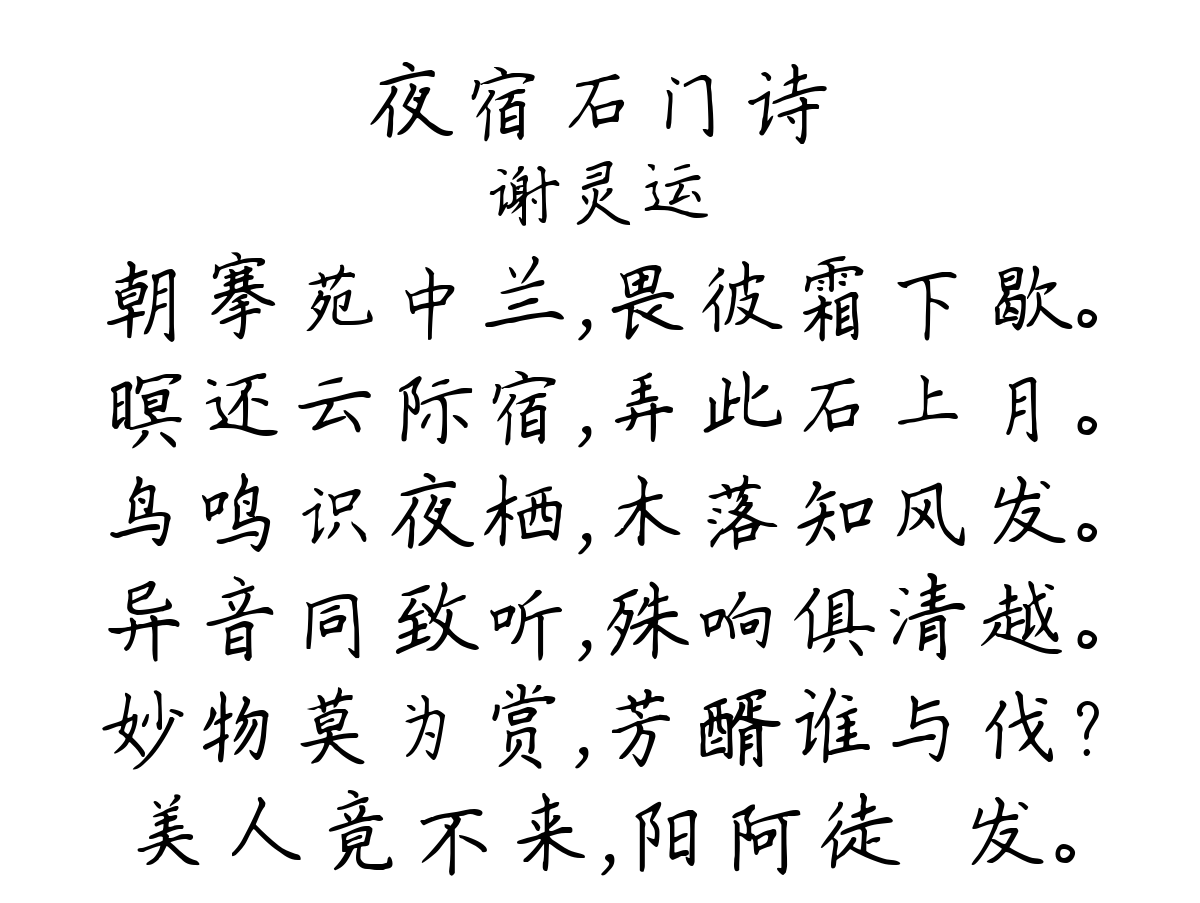 夜宿石门诗
谢灵运
朝搴苑中兰,畏彼霜下歇。
暝还云际宿,弄此石上月。
鸟鸣识夜栖,木落知风发。
异音同致听,殊响俱清越。
妙物莫为赏,芳醑谁与伐?
美人竟不来,阳阿徒 发。